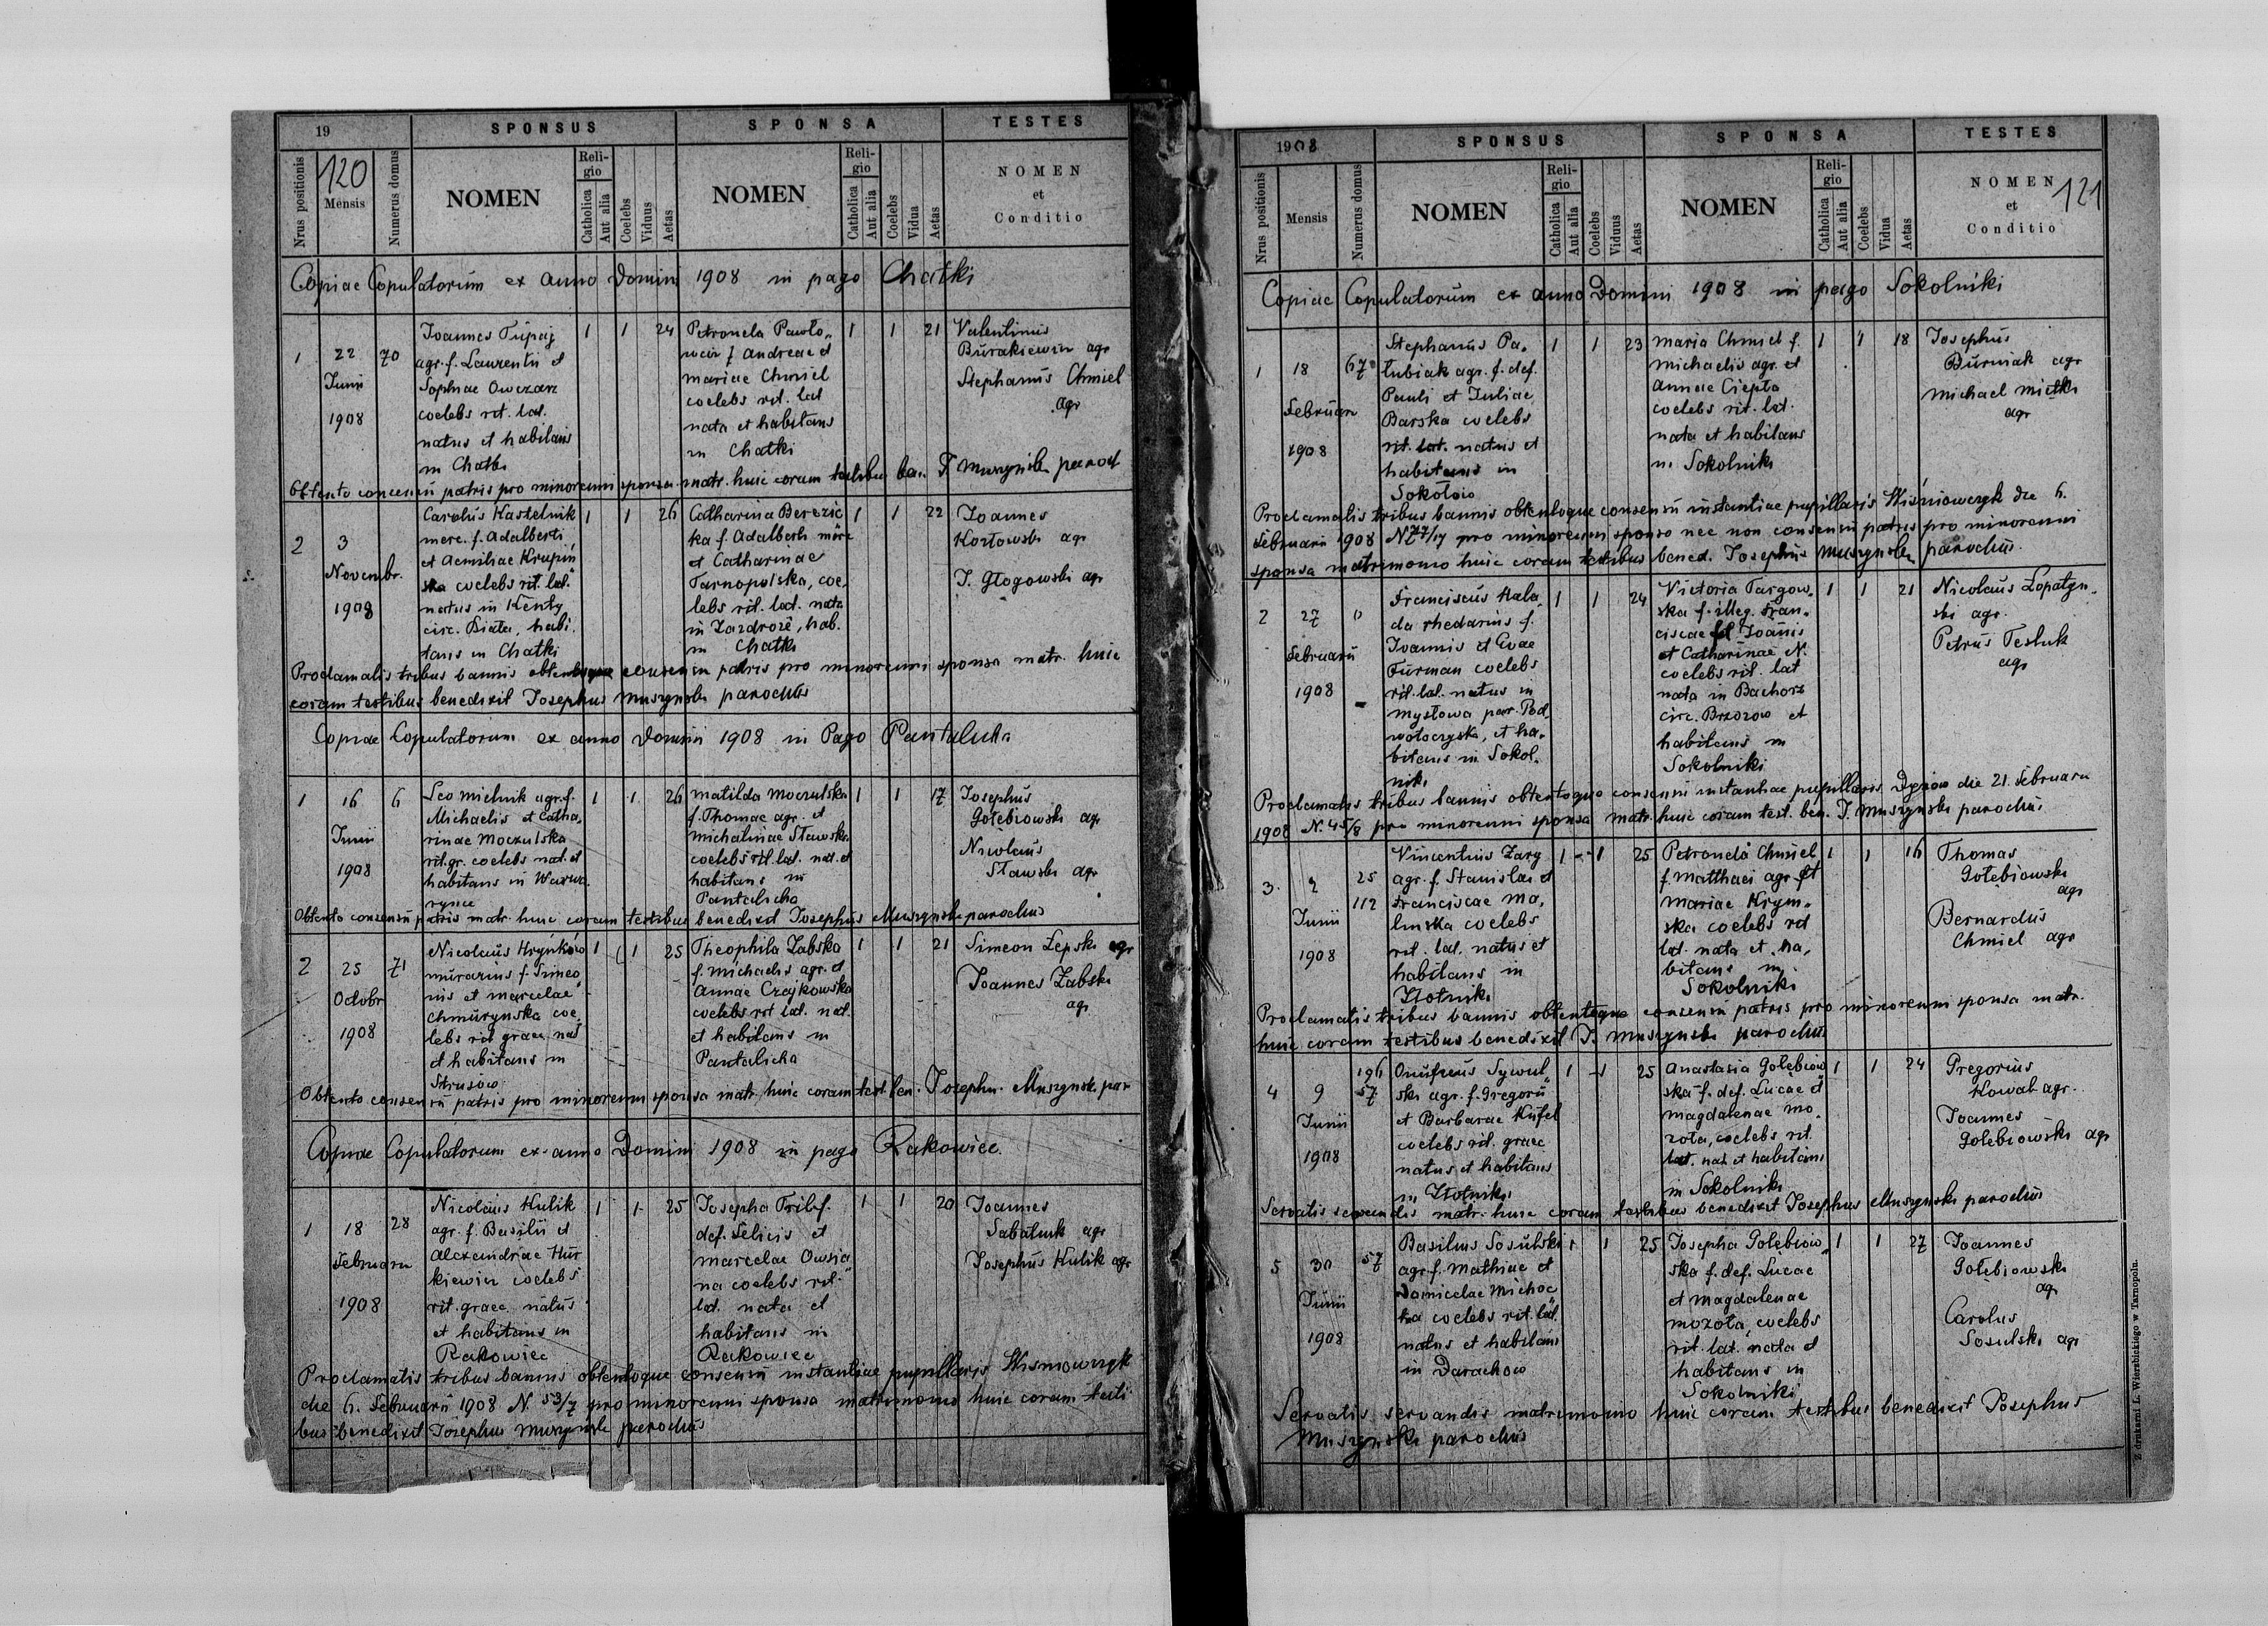 19
120
SPONSUS
SPONSA
TESTES
Nrus positionis
Mensis
Numerus domus
NOMEN
Religio
Catholica
Aut alia
Coelebs
Viduus
Aetas
NOMEN
Religio
Catholica
Aut alia
Coelebs
Vidua
Aetas
NOMEN
et
Conditio
Copiae Copulatorum ex anno Domini 1908 in pago Chatki
1
22
Junii
1908
70
Joannes Tupaj
agr. f. Laurentii et
Sophiae Owczarz
coelebs rit. lat.
natus et habitans
in Chatki
1 1 24
Petronela Pawło„
wicz f. Andreae et
Mariae Chmiel
coelebs rit. lat
nata et habitans
in Chatki
1 1 21
Valentinus
Burakiewicz agr
Stephanus Chmiel
agr
Obtento consensu patris pro minorenni sponsa matr. huic coram testibus ben. J. Muszyński paroch
2
3
Novembr.
1908
Carolus Kastelnik
merc. f. Adalberti
et Aemiliae Krupiń
ska coelebs rit. lat.
natus in Kenty
circ. Biała, habi.
tans in Chatki
1 1 26
Catharina Berezic
ka f. Adalberti
et Catharinae
Tarnopolska, coe,
lebs rit. lat. nata
in Zazdrość, hab.
in Chatki
1 1 22
Joannes
Kozłowski agr
J. Głogowski agr
Proclamatis tribus bannis obtentoque consensu patris pro minorenni sponsa matr. huic
coram testibus benedixit Josephus Muszyński parochus
Copiae Copulatorum ex anno Domini 1908 in Pago Pantalicha
1
16
Junii
1908
6
Leo Mielnik agr. f.
Michaelis et Catha,
rinae Moczulska
rit. gr. coelebs nat. et
habitans in Warwa.
rynce
1 1 26
Matilda Moczulska
f. Thomae agr. et
Michalinae Stawska
coelebs rit. lat. nat. et
habitans in
Pantalicha
1 1 17
Josephus
Gołębiowski agr
Nicolaus
Stawski agr
Obtento consensu patris matr. huic coram testibus benedixit Josephus Muszyński parochus
2
25
Octobr
1908
71
Nicolaus Hryńków
murarius f. Simeo
nis et Marcelae
Chmurynska coe„
lebs rit graec. nat
et habitans in
Strusów
1 1 25
Theophila Zabska
f. Michaelis agr. et
Annae Czajkowska
coelebs rit lat. nat.
et habitans in
Pantalicha
1 1 21
Simeon Lepski agr
Joannes Zabski
agr
Obtento consensu patris pro minorenni sponsa matr. huic coram test. ben. Josephus Muszyński par
Copiae Copulatorum ex anno Domini 1908 in pago Rakowiec.
1
18
Februarii
1908
28
Nicolaus Kulik
agr. f. Basilii et
Alexandrae Hur
kiewicz coelebs
rit. graec. natus
et habitans in
Rakowiec
1 1 25
Josepha Fril f.
def. Felicis et
Marcelae Owsia„
na coelebs rit.
lat. nata et
habitans in
Rakowiec
1 1 20
Joannes
Sabatiuk agr
Josephus Kulik agr
Proclamatis tribus bannis obtentoque consensu instantiae pupillaris Wiśniowczyk
die 6. Februarii 1908 N. 53/7 pro minorenni sponsa matrimonio huic coram testi
bus benedixit Josephus Muszyński parochus
1908
121
SPONSUS
SPONSA
TESTES
Nrus positionis
Mensis
Numerus domus
NOMEN
Religio
Catholica
Aut alia
Coelebs
Viduus
Aetas
NOMEN
Religio
Catholica
Aut alia
Coelebs
Vidua
Aetas
NOMEN
et
Conditio
Copiae Copulatorum ex anno Domini 1908 in pago Sokolniki
1
18
Februarii
1908
67
Stephanus Pa„
łubiak agr. f. def.
Pauli et Juliae
Barska coelebs
rit. lat. natus et
habitans in
Sokołów
1 1 23
Maria Chmiel f.
Michaelis agr. et
Annae Ciepła
coelebs rit. lat.
nata et habitans
in Sokolniki
1 1 18
Josephus
Burniak agr
Michael Mielko
agr
Proclamatis tribus bannis obtentoque consensu instantiae pupillaris Wiśniowczyk die 6.
Februarii 1908 pro minorenni sponso nec non consensu patris pro minorenni
sponsa matrimonio huic coram testibus bened. Josephus Muszyński parochus.
2
27
Februarii
1908
Franciscus Hała,
da rhedarius f.
Joannis et Evae
Furman coelebs
rit. lat. natus in
Mysłowa par. Pod„
wołoczyska, et ha„
bitans in Sokol„
niki
1 1 24
Victoria Targow„
ska f. illeg. Fran„
ciscae Joannis
et Catharinae N.
coelebs rit. lat
nata in Bachorz
circ. Brzozow et
habitans in
Sokolniki
1 1 21
Nicolaus Łopatyn„
ski agr.
Petrus Tesluk
agr
Proclamatis tribus bannis obtentoque consensu instantiae pupillaris Dynów die 21. Februarii
1908 N. 45/8 pro minorenni sponsa matr. huic coram test. ben. J. Muszyński parochus
3.
2
Junii
1908
25
112
Vincentius Zary
agr. f. Stanislai et
Franciscae Ma,
linska coelebs
rit. lat. natus et
habitans in
Złotniki
1 1 25
Petronela Chmiel
f. Matthaei agr et
Mariae Krym„
ska coelebs rit
lat. nata et ha,
bitans in
Sokolniki
1 1 16
Thomas
Gołębiowski
agr
Bernardus
Chmiel agr
Proclamatis tribus bannis obtentoque consensu patris pro minorenni sponsa matr.
huic coram testibus benedixit J. Muszyński parochus
4
9
Junii
1908
196
57
Onufreus Sywul„
ski agr. f. Gregorii
et Barbarae Kufel
coelebs rit. graec
natus et habitans
in Złotniki
1 1 25
Anastasia Gołębiow
ska f. def. Lucae et
Magdalenae Mo„
zota, coelebs rit.
lat. nat et habitans
in Sokolniki
1 1 24
Gregorius
Kowal agr.
Joannes
Gołębiowski agr
Servatis servandis matr. huic coram testibus benedixit Josephus Muszyński parochus
5
30
Junii
1908
57
Basilius Sosulski
agr. f. Mathiae et
Domicelae Michoc
ka coelebs rit. lat.
natus et habitans
in Darachow
1 1 25
Josepha Gołębiow„
ska f. def. Lucae
et Magdalenae
Mozota coelebs
rit. lat. nata et
habitans in
Sokolniki
1 1 27
Joannes
Gołębiowski
agr
Carolus
Sosulski agr
Servatis servandis matrimonio huic coram testibus benedixit Josephus
Muszyński parochus
Z drukarni L. Wierzbickiego w Tarnopolu.